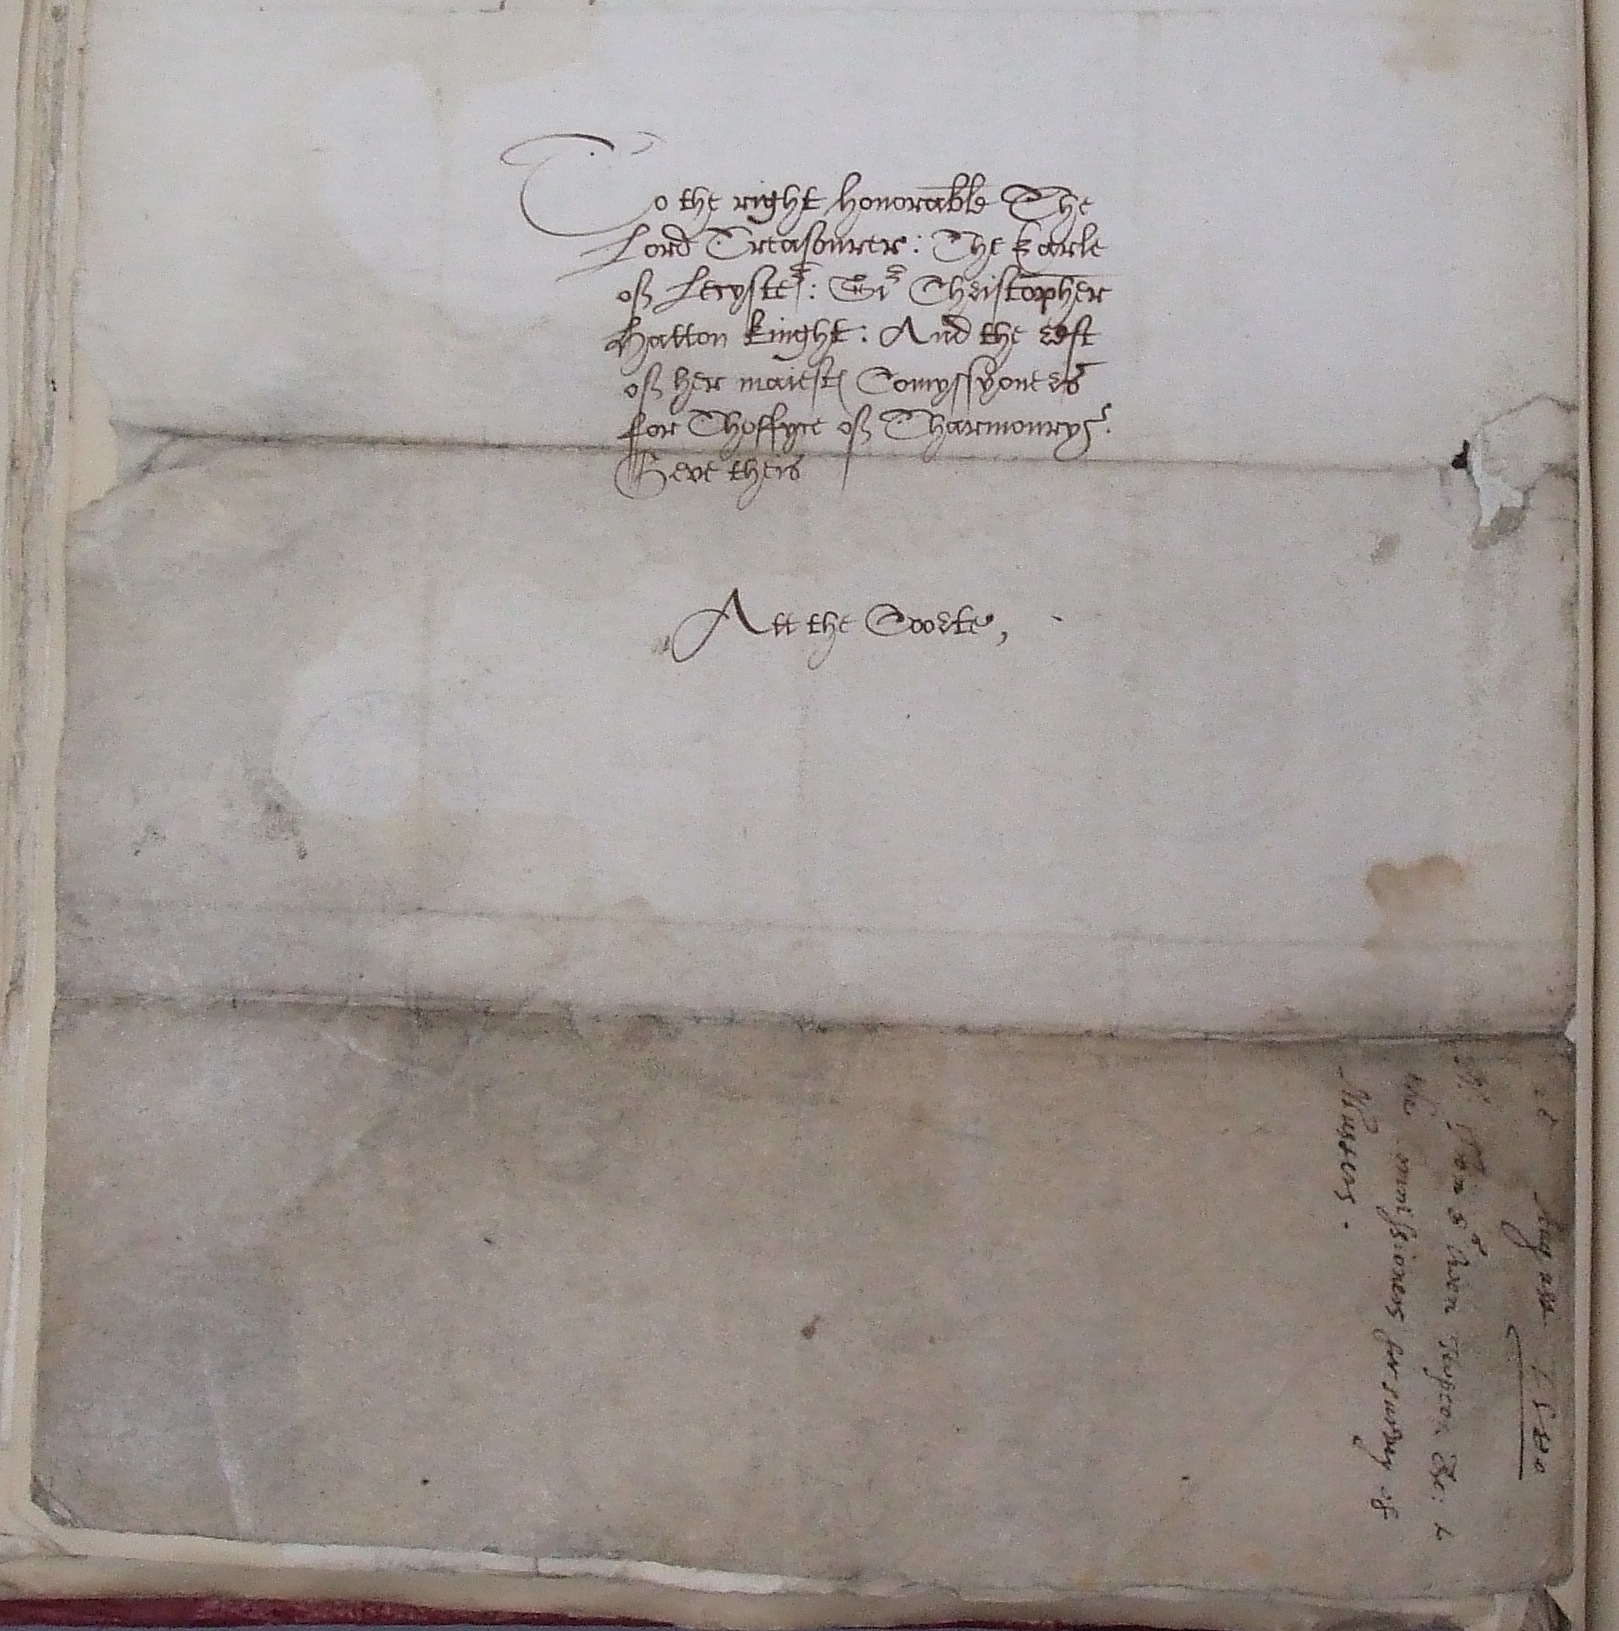 To the right honorable The
Lord Treasourer: The Earle
off Lecyster: Sir Christopher
Hatton knight: And the rest
off her maiesties Comyssyoners
for Thoffyce off Tharmourys.
Geve theis
Att the Coorte,
August 1580
the commissioners for survey of
Musters.